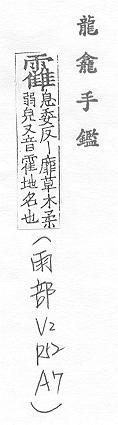 龍龕手鑑
靃息委反〡靡草木柔
弱皃又音霍地名也
(雨部
V2
P52
A7)